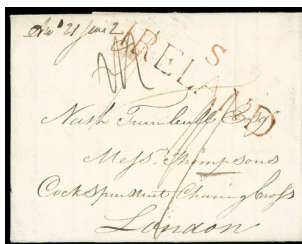 S
IRELAND
Nash Turnbull Esq
Mess Thompsons
Cockspur Street Charing Cross
London